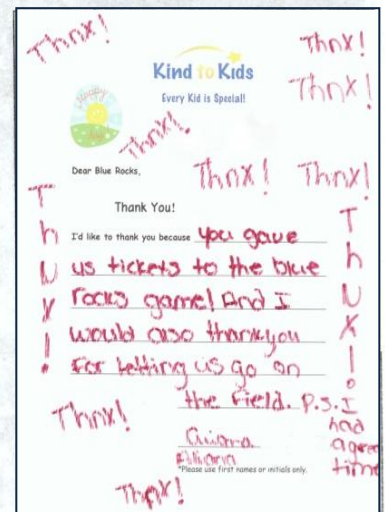 Thnx!
Thnx!
Thnx!
Kind to Kids
Every Kid is Special!
Happy
Thnx!
Dear Blue Rocks,
Thnx! Thnx!
Thank You!
I'd like to thank you because you gave
us tickets to the blue
rocks game! And I
would also thankyou
for letting us go on
the field. P.S. I
had
a gre
time
*Please use first names or initials only.
Thnx!
Thnx!
Thnx!
Thnx!